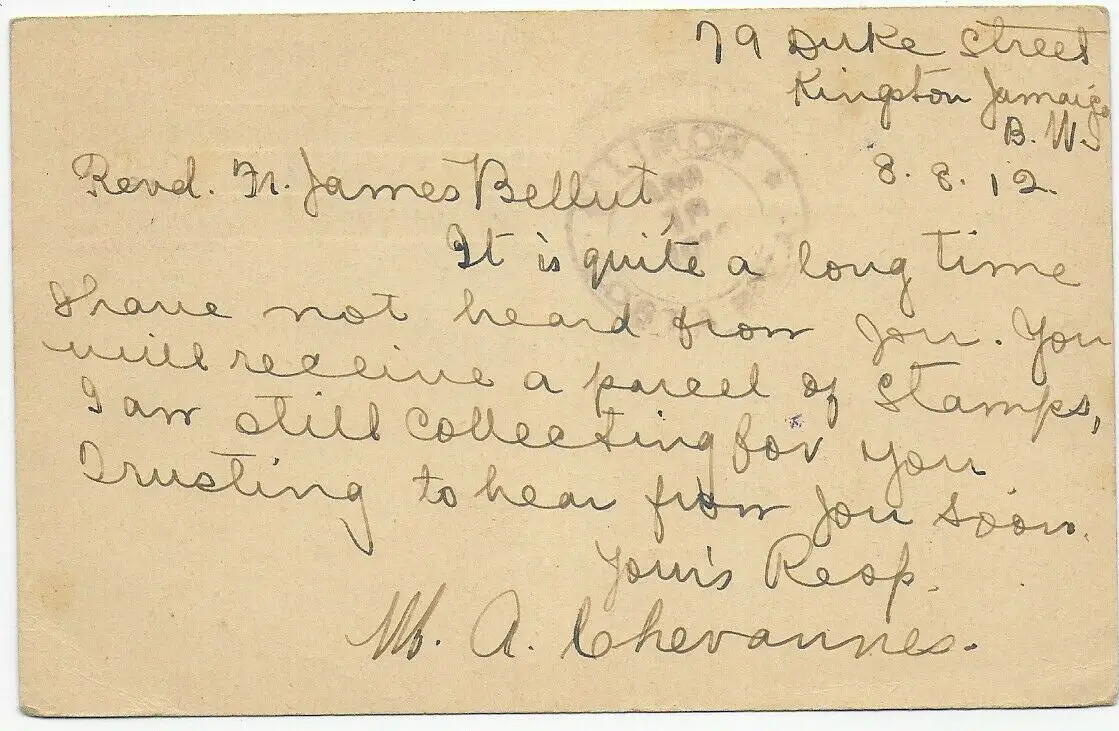 79 Duke Street
Kingston Jamaica
B. W.
8. 8. 12.
Revd. Fr. James Bellut,
It is quite a long time
I have not heard from you. You
will receive a parcel of Stamps,
I am still collecting for you
Trusting to hear from you soon.
Your's Resp.
M. A. Chevannes.